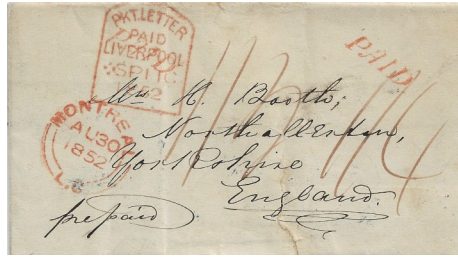 PKT. LETTER
PAID
LIVERPOOL
PAID
MONTREAL
AU 30
1852
L.C
Wm H. Booth,
Northallerton,
Yorkshire
England.
prepaid